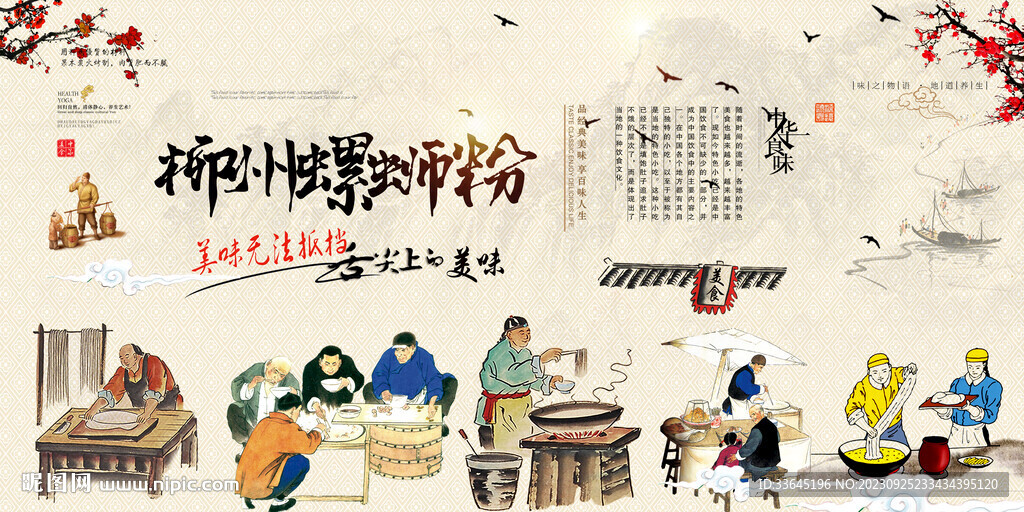 柳州螺蛳粉
美味无法抵挡
舌尖上的美味
HEALTH
YOGA
品经典美味 享百味人生
TASTE CLASSIC ENJOY DELICIOUS LIFE
随着时间的流逝,各地的特色
美食也越来越多,越来越丰富
了。现如今特色小吃已经是中
国饮食不可缺少的一部分,并
成为中国饮食中的主要内容之
一。在中国各个地方都有其自
己独特的小吃,以至于被称为
是当地的特色小吃。这种小吃
已经不仅是填饱肚子追求肚子
不饿的层次了,而是体现出了
当地的一种饮食文化。
中华食味
味之物语·地道养生
美食
昵图网 www.nipic.com
ID:33645196 NO:20230925233434395120